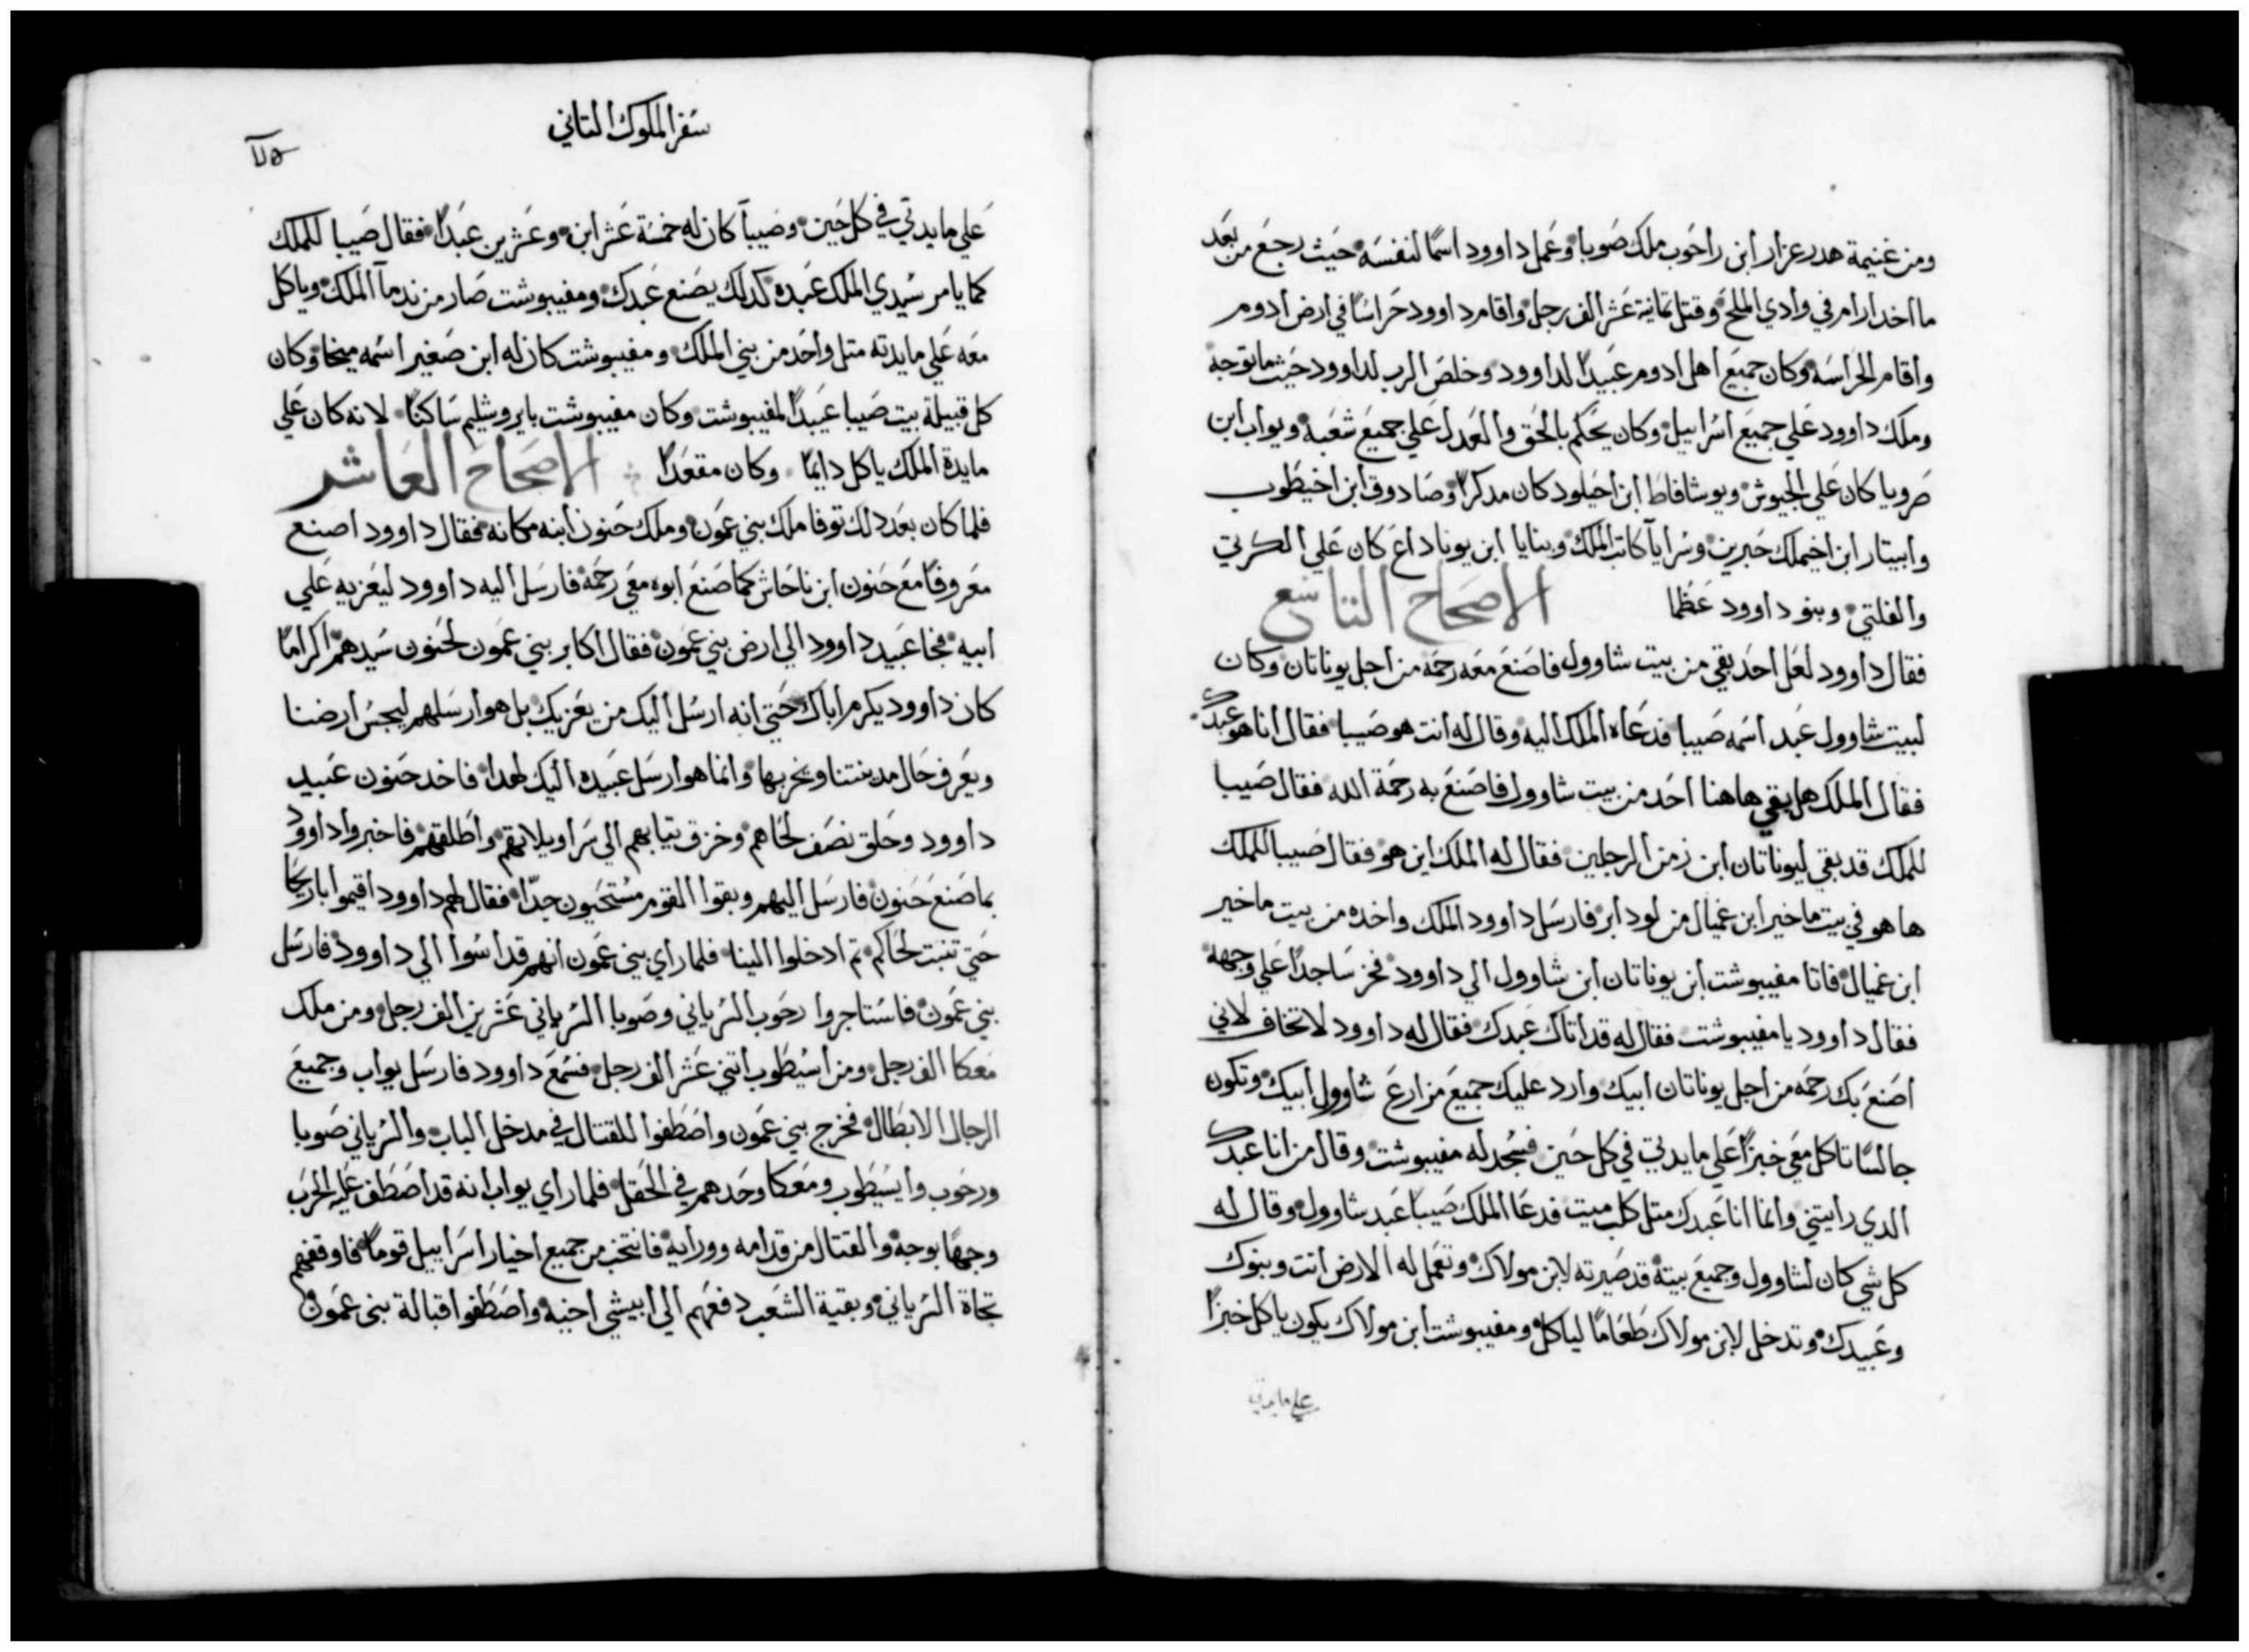 ومن غنيمة هدرعزار ابن راحوب ملك صوبا وعمل داوود اسمًا لنفسه حيث رجع من بعد
ما اخد ارام في وادي الملح وقتل تمانية عشر الف رجل واقام داوود حراسًا في ارض ادوم
واقام الحراسه وكان جميع اهل ادوم عبيدًا لداوود وخلص الرب لداوود حيث ما توجه
وملك داوود علي جميع اسراييل وكان يحكم بالحق والعدل علي جميع شعبه ويواب ابن
صرويا كان علي الجيوش ويوشافاط ابن احيلود كان مدكرًا وصادوق ابن اخيطوب
وابيتار ابن اخيملك حبرين وسرايا كاتب الملك وبنايا ابن يوناداع كان علي الكريتي
والفلتي وبنو داوود عظما الاصحاح التاسع
فقال داوود لعل احد بقي من بيت شاوول فاصنع معه رحمه من اجل يوناتان وكان
لبيت شاوول عبد اسمه صيبا فدعاه الملك اليه وقال له انت هو صيبا فقال انا هو عبدك
فقال الملك هل بقي هاهنا احد من بيت شاوول فاصنع به رحمة الله فقال صيبا
للملك قد بقي ليوناتان ابن زمن الرجلين فقال له الملك اين هو فقال صيبا للملك
ها هو في بيت ماخير ابن عميال من لودابر فارسل داوود الملك واخده من بيت ماخير
ابن عميال فاتا مفيبوشت ابن يوناتان ابن شاوول الي داوود فخر ساجدًا علي وجهه
فقال داوود يا مفيبوشت فقال له قد اتاك عبدك فقال له داوود لا تخاف لاني
اصنع بك رحمه من اجل يوناتان ابيك وارد عليك جميع مزارع شاوول ابيك وتكون
جالسًا تاكل معي خبزًا علي مايدتي في كل حين فسجد له مفيبوشت وقال من انا عبدك
الدي رايتني وانما انا عبدك متل كلب ميت فدعا الملك صيبا عبد شاوول وقال له
كل شي كان لشاوول وجميع بيته قد صيرته لابن مولاك وتعمل له الارض انت وبنوك
وعبيدك وتدخل لابن مولاك طعامًا لياكل ومفيبوشت ابن مولاك يكون ياكل خبزًا
علي مايدتي
سفر الملوك التاني
علي مايدتي في كل حين وصيبا كان له خمسة عشر ابن وعشرين عبدًا فقال صيبا للملك
كما يامر سيدي الملك عبده كدلك يصنع عبدك ومفيبوشت صار من ندما الملك وياكل
معه علي مايدته متل واحد من بني الملك ومفيبوشت كان له ابن صغير اسمه ميخا وكان
كل قبيلة بيت صيبا عبيدًا لمفيبوشت وكان مفيبوشت بايروشليم ساكنًا لانه كان علي
مايدة الملك ياكل دايمًا وكان مقعدًا الاصحاح العاشر
فلما كان بعد دلك توفا ملك بني عمون وملك حنون ابنه مكانه فقال داوود اصنع
معروفًا مع حنون ابن ناحاش كما صنع ابوه معي رحمه فارسل اليه داوود ليعزيه علي
ابيه فجا عبيد داوود الي ارض بني عمون فقال اكابر بني عمون لحنون سيدهم اكرامًا
كان داوود يكرم اباك حتي انه ارسل اليك من يعزيك بل هو ارسلهم ليجس ارضنا
ويعرف حال مدينتنا ويخربها وانما هو ارسل عبيده اليك لهدا فاخد حنون عبيد
داوود وحلق نصف لحاهم وخزق تيابهم الي سراويلاتهم واطلقهم فاخبروا داوود
بما صنع حنون فارسل اليهم وبقوا القوم مستحيون جدًا فقال لهم داوود اقيموا باريحا
حتي تنبت لحاكم تم ادخلوا الينا فلما راي بني عمون انهم قد اسوا الي داوود فارسل
بني عمون فاستاجروا رحوب السرياني وصوبا السرياني عشرين الف رجل ومن ملك
معكا الف رجل ومن اسيطوب اتني عشر الف رجل فسمع داوود فارسل يواب وجميع
الرجال الابطال فخرج بني عمون واصطفوا للقتال في مدخل الباب والسرياني صوبا
ورحوب وايسيطوب ومعكا وحدهم في الحقل فلما راي يواب انه قد اصطف عليه الحرب
وجهًا بوجه والقتال من قدامه وورايه فانتخب من جميع اخيار اسراييل قومًا فاوقفهم
تجاة السرياني وبقية الشعب دفعهم الي ابيشي اخيه واصطفوا قبالة بني عمون